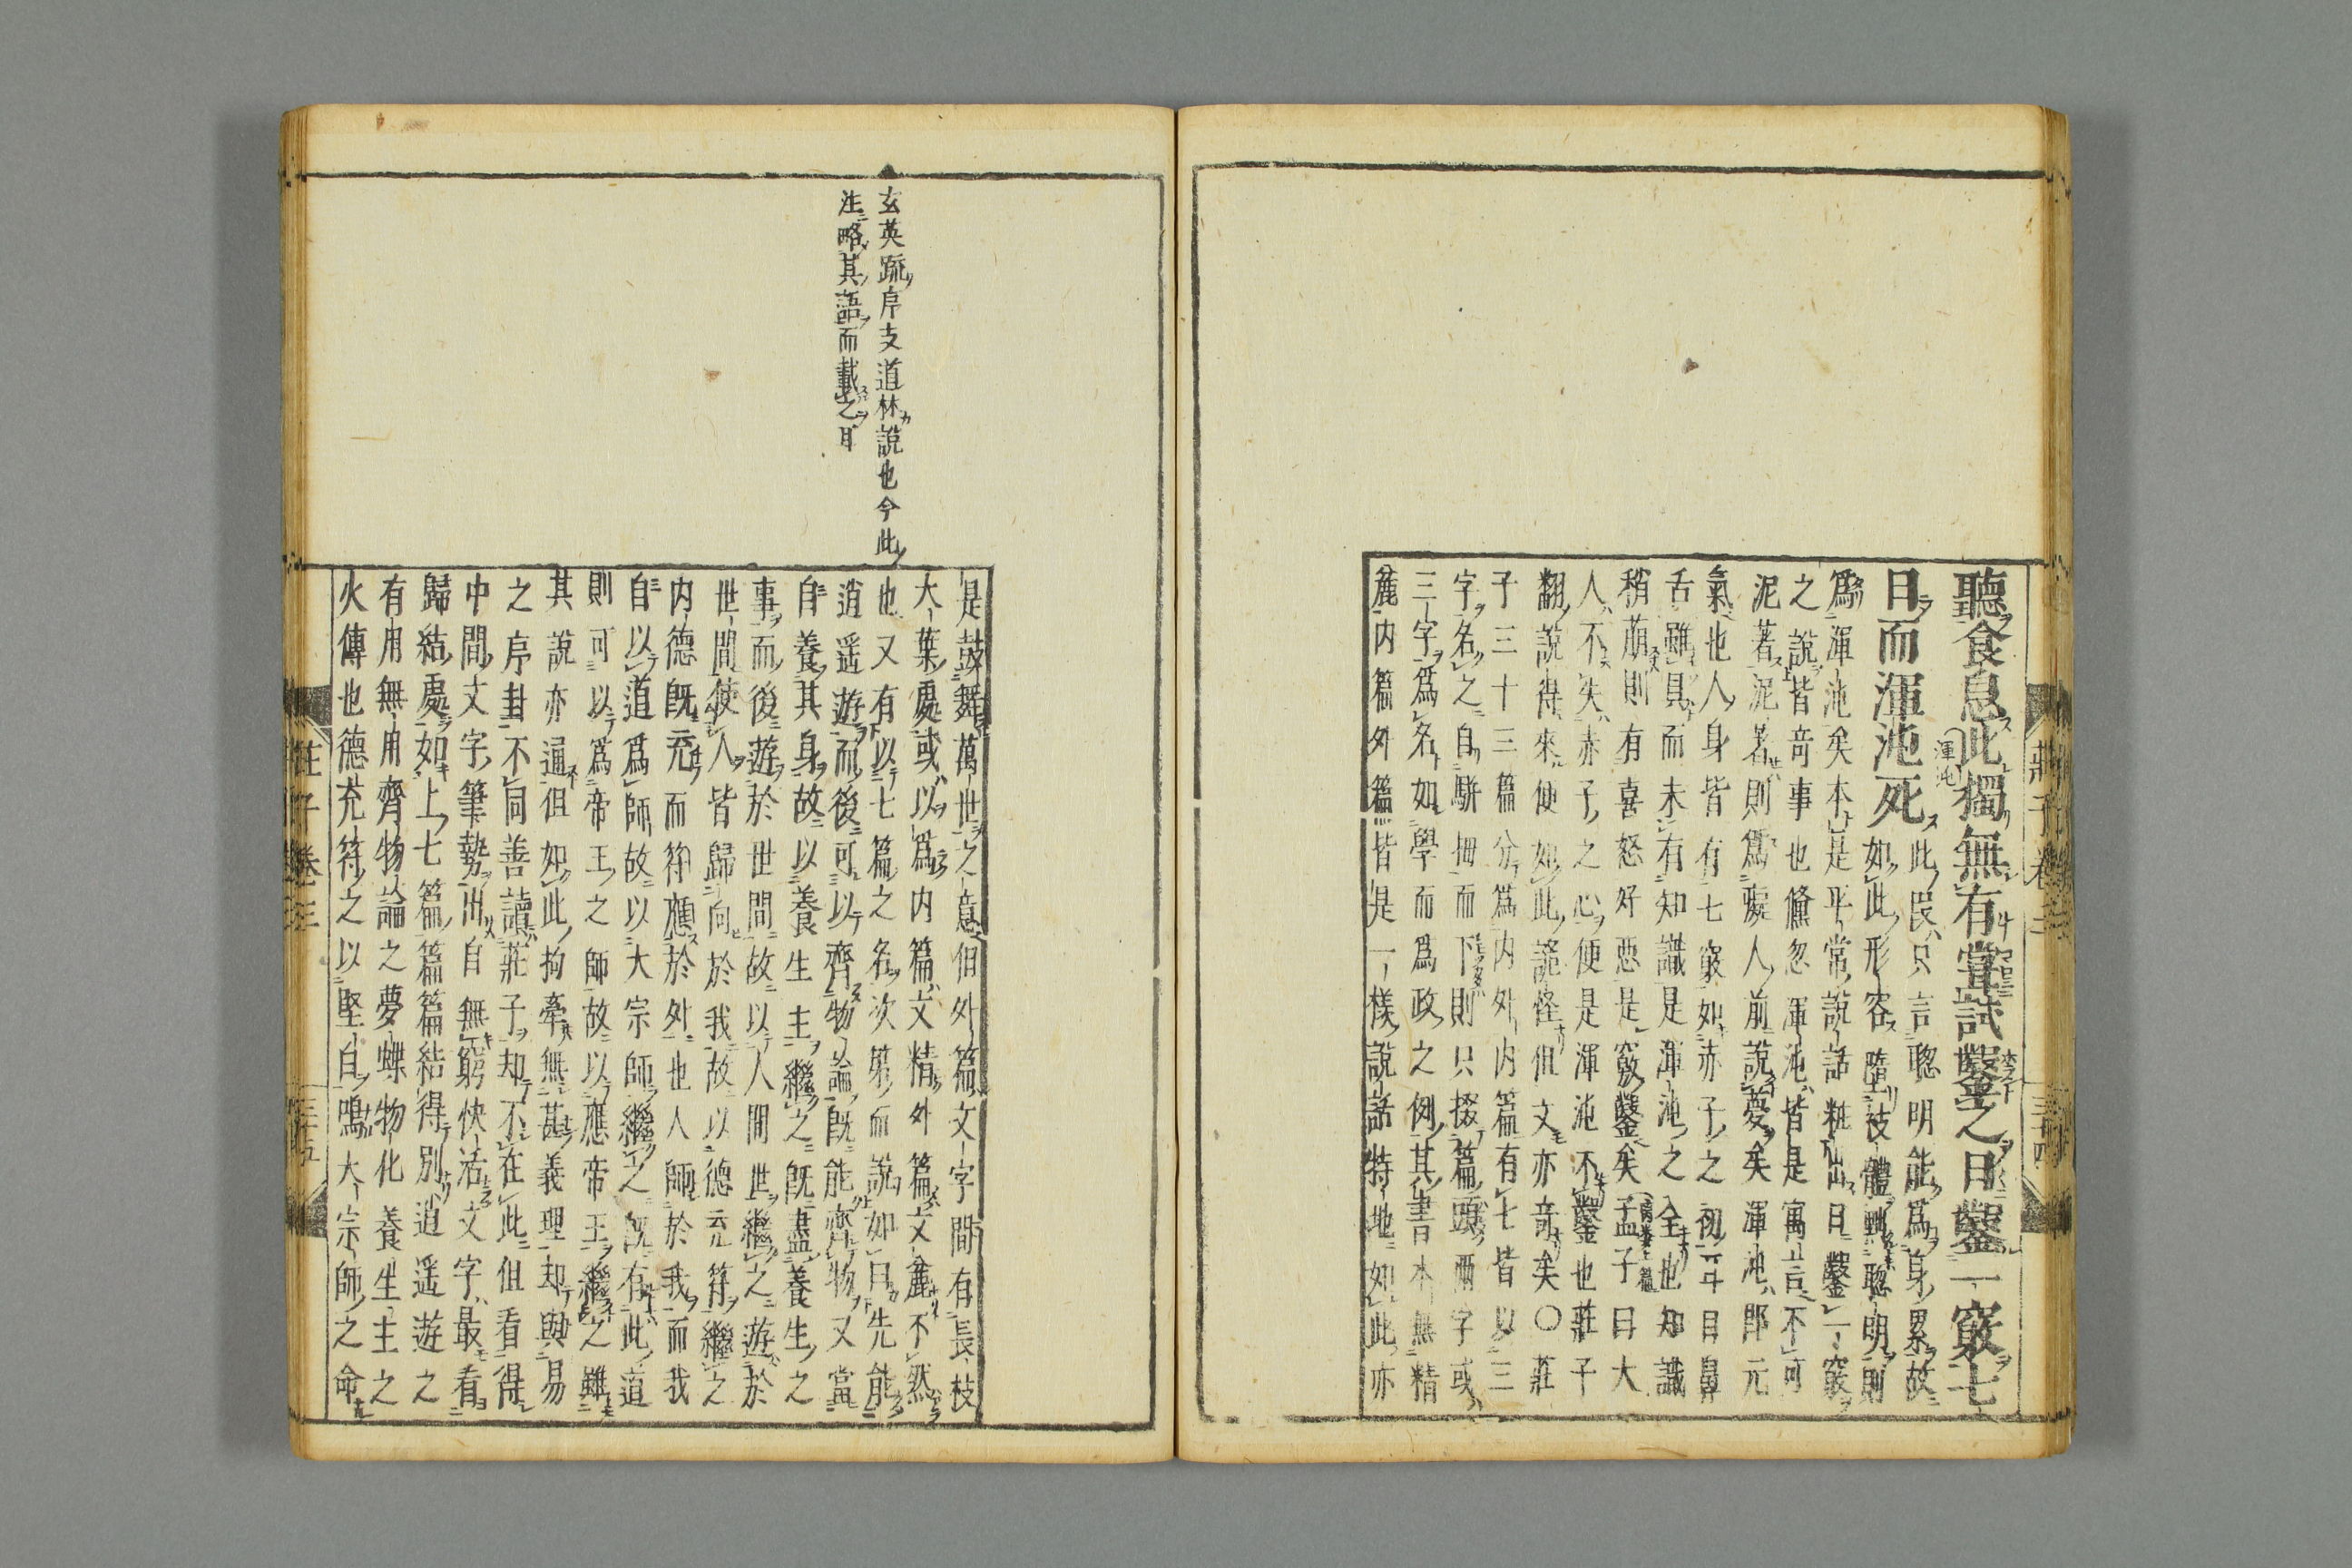 莊子卷三
三十四
聽食息此獨無有嘗試鑿之日鑿一竅七
渾沌
日而渾沌死
此段只言聰明能爲身累故
如此形容墮枝體黜聰明則
爲渾沌矣本是平常說話粧出日鑿一竅
之說皆奇事也儵忽渾沌皆是寓言不可
泥著泥著則爲癡人前說夢矣渾沌即元
氣也人身皆有七竅如赤子之初耳目鼻
舌雖具而未有知識是渾沌之全也知識
稍萌則有喜怒好惡是竅鑿矣孟子曰大
人不失赤子之心便是渾沌不鑿也莊子
翻說得來便如此詭怪但文亦奇矣○莊
子三十三篇分爲内外内篇有七皆以三
字名之自駢拇而下則只掇篇頭兩字或
三字爲名如學而爲政之例其書本無精
麄内篇外篇皆是一樣說話特地如此亦
玄英疏序支道林說也今此
注略其語而載之耳
是鼓舞萬世之意但外篇文字間有長枝
大葉處或以爲内篇文精外篇文麄不然
也又有以七篇之名次第而說如曰先能
逍遥遊而後可以齊物論既能齊物又當
自養其身故以養生主繼之既盡養生之
事而後遊於世間故以人間世繼之遊於
世間使人皆歸向於我故以德充符繼之
内德既充而符應於外也人師於我而我
自以道爲師故以大宗師繼之既有此道
則可以爲帝王之師故以應帝王繼之雖
其說亦通但如此拘牽無甚義理却與易
之序卦不同善讀莊子却不在此但看得
中間文字筆勢出自無窮快活文字最看
歸結處如上七篇篇篇結得別逍遥遊之
有用無用齊物論之夢蝶物化養生主之
火傳也德充符之以堅白鳴大宗師之命
莊子卷三
三十五